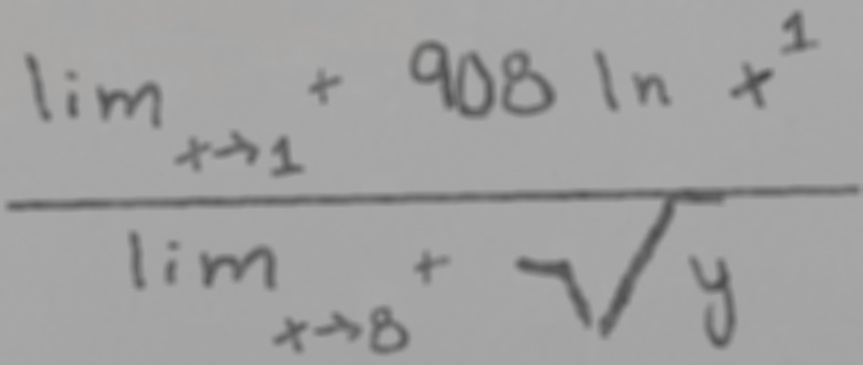 lim x→1 + 908 ln x^1
lim x→8 + √y